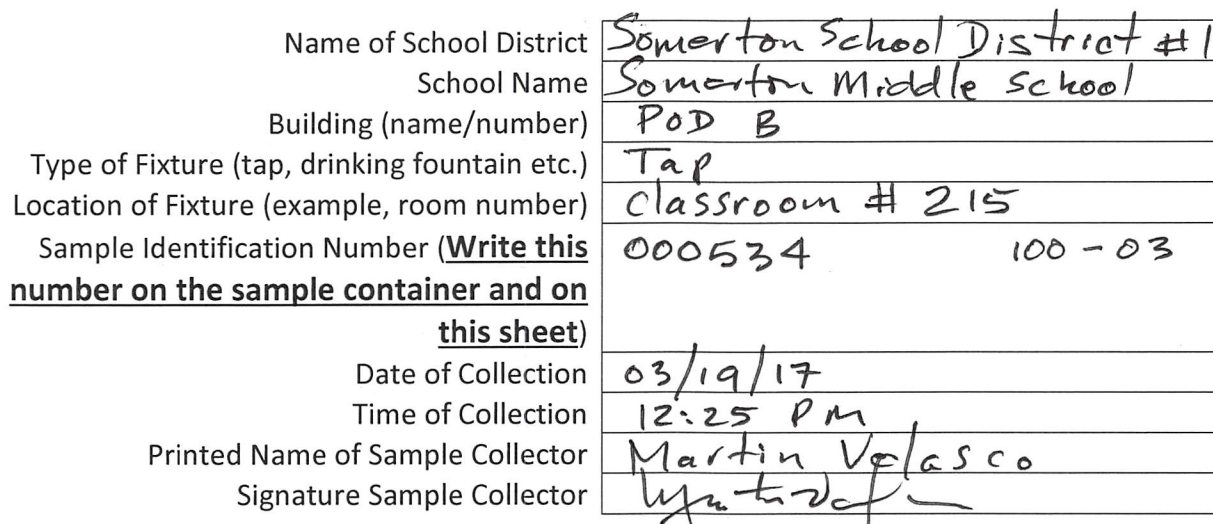 Name of School District Somerton School District #1
School Name Somerton Middle School
Building (name/number) POD B
Type of Fixture (tap, drinking fountain etc.) Tap
Location of Fixture (example, room number) classroom # 215
Sample Identification Number (Write this 000534 100-03
number on the sample container and on
this sheet)
Date of Collection 03/19/17
Time of Collection 12:25 PM
Printed Name of Sample Collector Martin Velasco
Signature Sample Collector